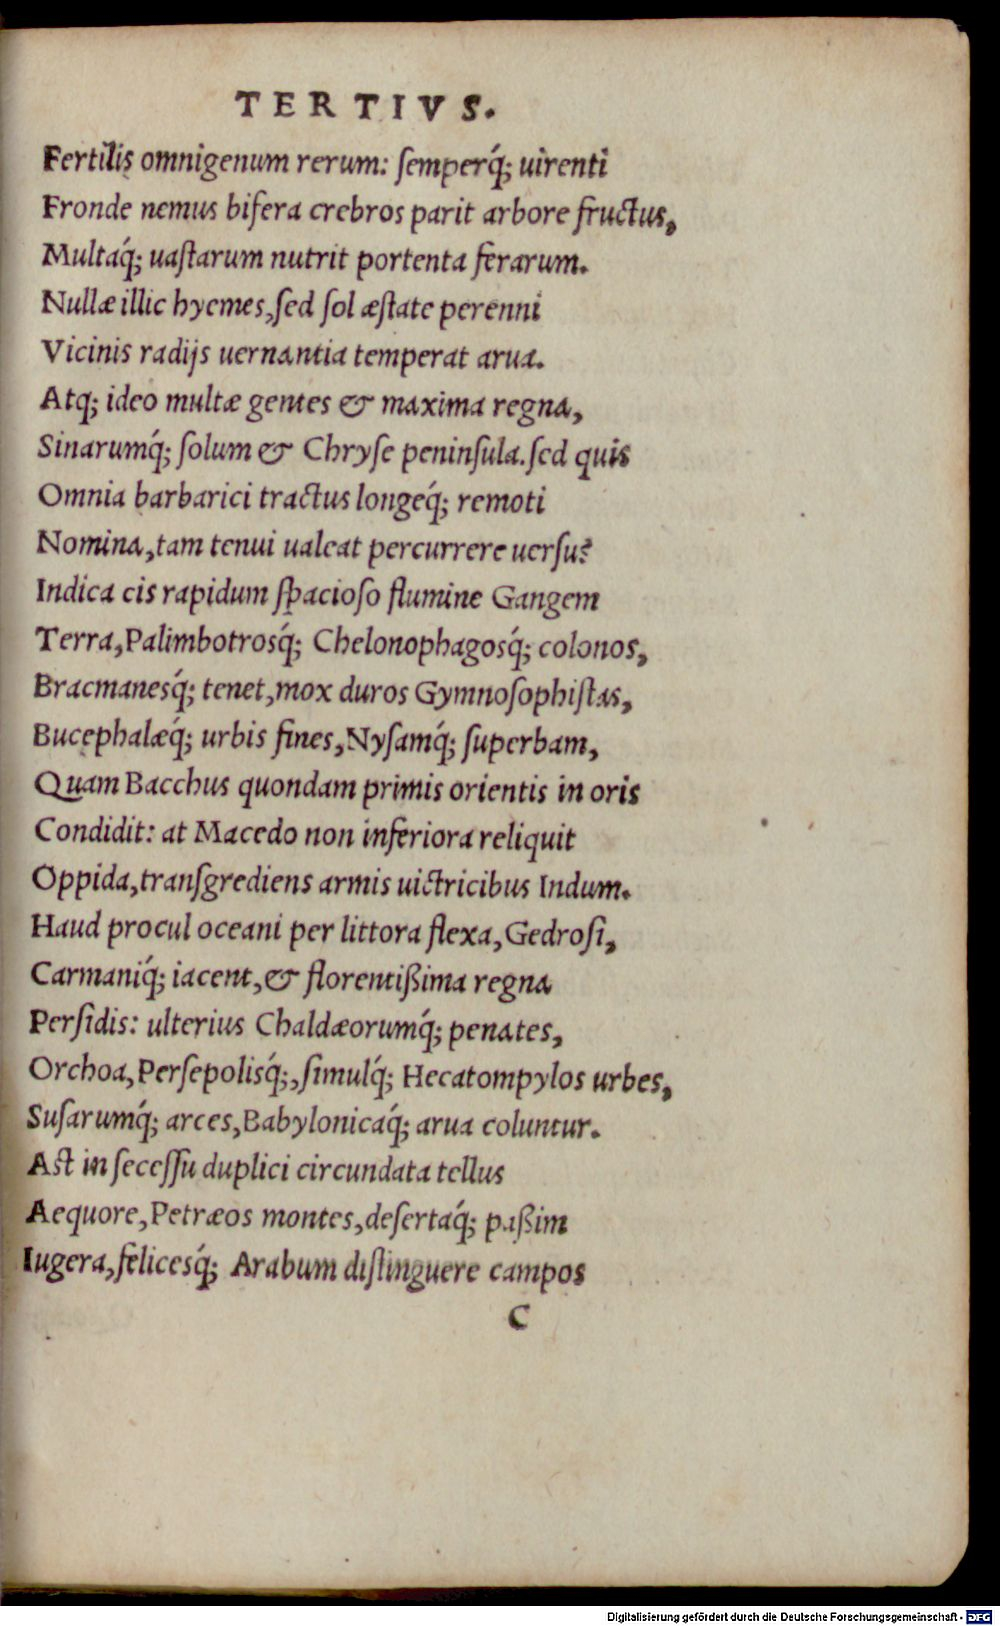 TERTIVS.
Fertilis omnigenum rerum: ſemperq́; uirenti
Fronde nemus bifera crebros parit arbore fructus,
Multaq́; uaſtarum nutrit portenta ferarum.
Nullæ illic hyemes, ſed ſol æſtate perenni
Vicinis radijs uernantia temperat arua.
Atq; ideo multæ gentes & maxima regna,
Sinarumq́; ſolum & Chryſe peninſula. ſed quis
Omnia barbarici tractus longeq́; remoti
Nomina, tam tenui ualeat percurrere uerſu?
Indica cis rapidum ſpacioſo flumine Gangem
Terra, Palimbotrosq́; Chelonophagosq́; colonos,
Bracmanesq́; tenet, mox duros Gymnoſophiſtas,
Bucephalæq́; urbis fines, Nyſamq́; ſuperbam,
Quam Bacchus quondam primis orientis in oris
Condidit: at Macedo non inferiora reliquit
Oppida, tranſgrediens armis uictricibus Indum.
Haud procul oceani per littora flexa, Gedroſi,
Carmaniq́; iacent, & florentißima regna
Perſidis: ulterius Chaldæorumq́; penates,
Orchoa, Perſepolisq́;, ſimulq́; Hecatompylos urbes,
Suſarumq́; arces, Babylonicaq́; arua coluntur.
Aſt in ſeceſſu duplici circundata tellus
Aequore, Petræos montes, deſertaq́; paßim
Iugera, felicesq́; Arabum diſtinguere campos
C
Digitalisierung gefördert durch die Deutsche Forschungsgemeinschaft - DFG